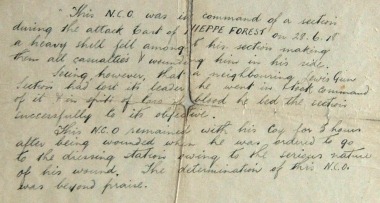 "This N.C.O. was in command of a section
during the attack East of NIEPPE FOREST on 28.6.18
a heavy shell fell among his section making
them all casualties & wounding him in his side.
Seeing, however, that a neighbouring Lewis Gun
Section had lost its leader he went & took command
of it & in spite of loss of blood he led the section
successfully to its objective.
This N.C.O remained with his coy for 3 hours
after being wounded when he was ordered to go
to the dressing station owing to the serious nature
of his wound. The determination of this N.C.O.
was beyond praise.